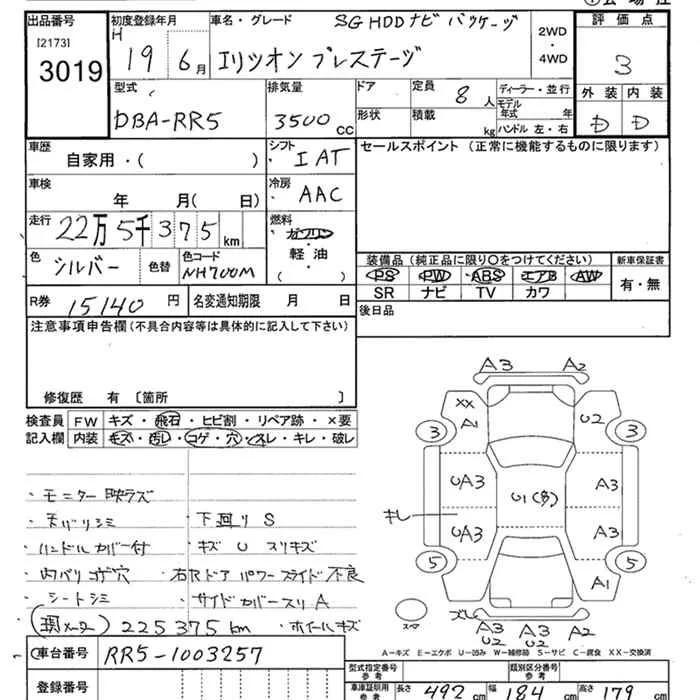 出品番号 初度登録年月 車名・グレード SG HDDナビ パッケージ 評価点
[2173] H 2WD
3019 19 6月 エリシオン プレステージ ・ 4WD 3
型式 排気量 ドア 定員 8人 ディーラー・並行 外装 内装
モデル年式 年
DBA-RR5 3500cc 形状 積載 kg ハンドル 左・右 D D
車歴 シフト セールスポイント (正常に機能するものに限ります)
自家用・( ) I AT
車検 冷房
年 月( 日) AAC
走行 22万5千375km 燃料
ガソリン
・
色 色替 色コード 軽油 装備品 (純正品に限り○をつけてください) 新車保証書
シルバー NH700M ( ) PS PW ABS エアB AW 有・無
SR ナビ TV カワ
R券 15140円 名変通知期限 月 日 後日品
注意事項申告欄(不具合内容等は具体的に記入して下さい)
修復歴 有 〔箇所 〕
検査員 FW キズ・飛石・ヒビ割・リペア跡・×要
記入欄 内装 キズ・汚レ・コゲ・穴・スレ・キレ・破レ
A3 A2
XX A1 U2
3 3
UA3 A3
U1(多)
キレ
UA3 A3
5 5
A1
スペア
A3 A3 A2
U2 U2
・モニター映ラズ
・天バリシミ ・下回りS
・ハンドルカバー付 ・キズ U スリキズ
・内バリコゲ穴 ・右Rドア パワースライド不良
・シートシミ ・サイドカバースリA
(関メーター) 225375km ・ホイールキズ
A=キズ E=エクボ U=凹み W=補修跡 S=サビ C=腐食 XX=交換済
車台番号 RR5-1003257
型式指定番号 参考 類別区分番号 参考
登録番号 車庫証明用 参考 長さ 492cm 幅 184cm 高さ 179cm